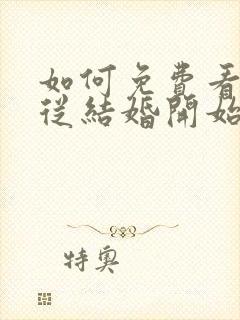 如何免費看
從結婚開始
特奧